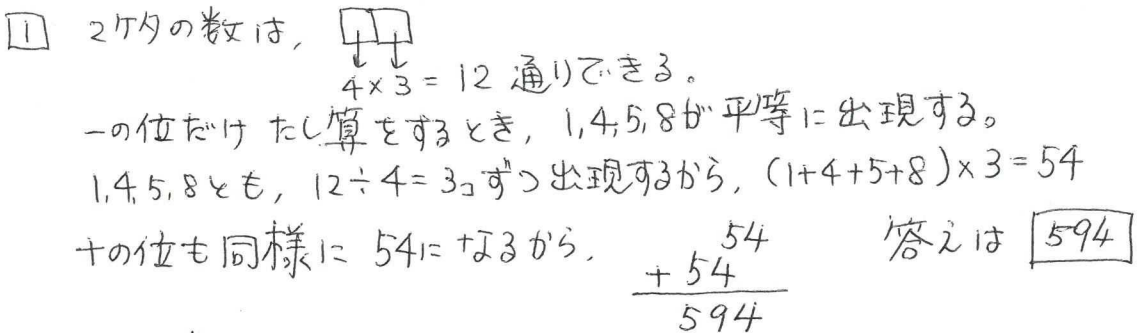 1 2ケタの数は,
4×3=12 通りできる。
一の位だけ たし算をするとき, 1,4,5,8が 平等に出現する。
1,4,5,8とも, 12÷4=3コずつ出現するから, (1+4+5+8)×3=54
十の位も同様に 54になるから,
54
+ 54
594
答えは 594